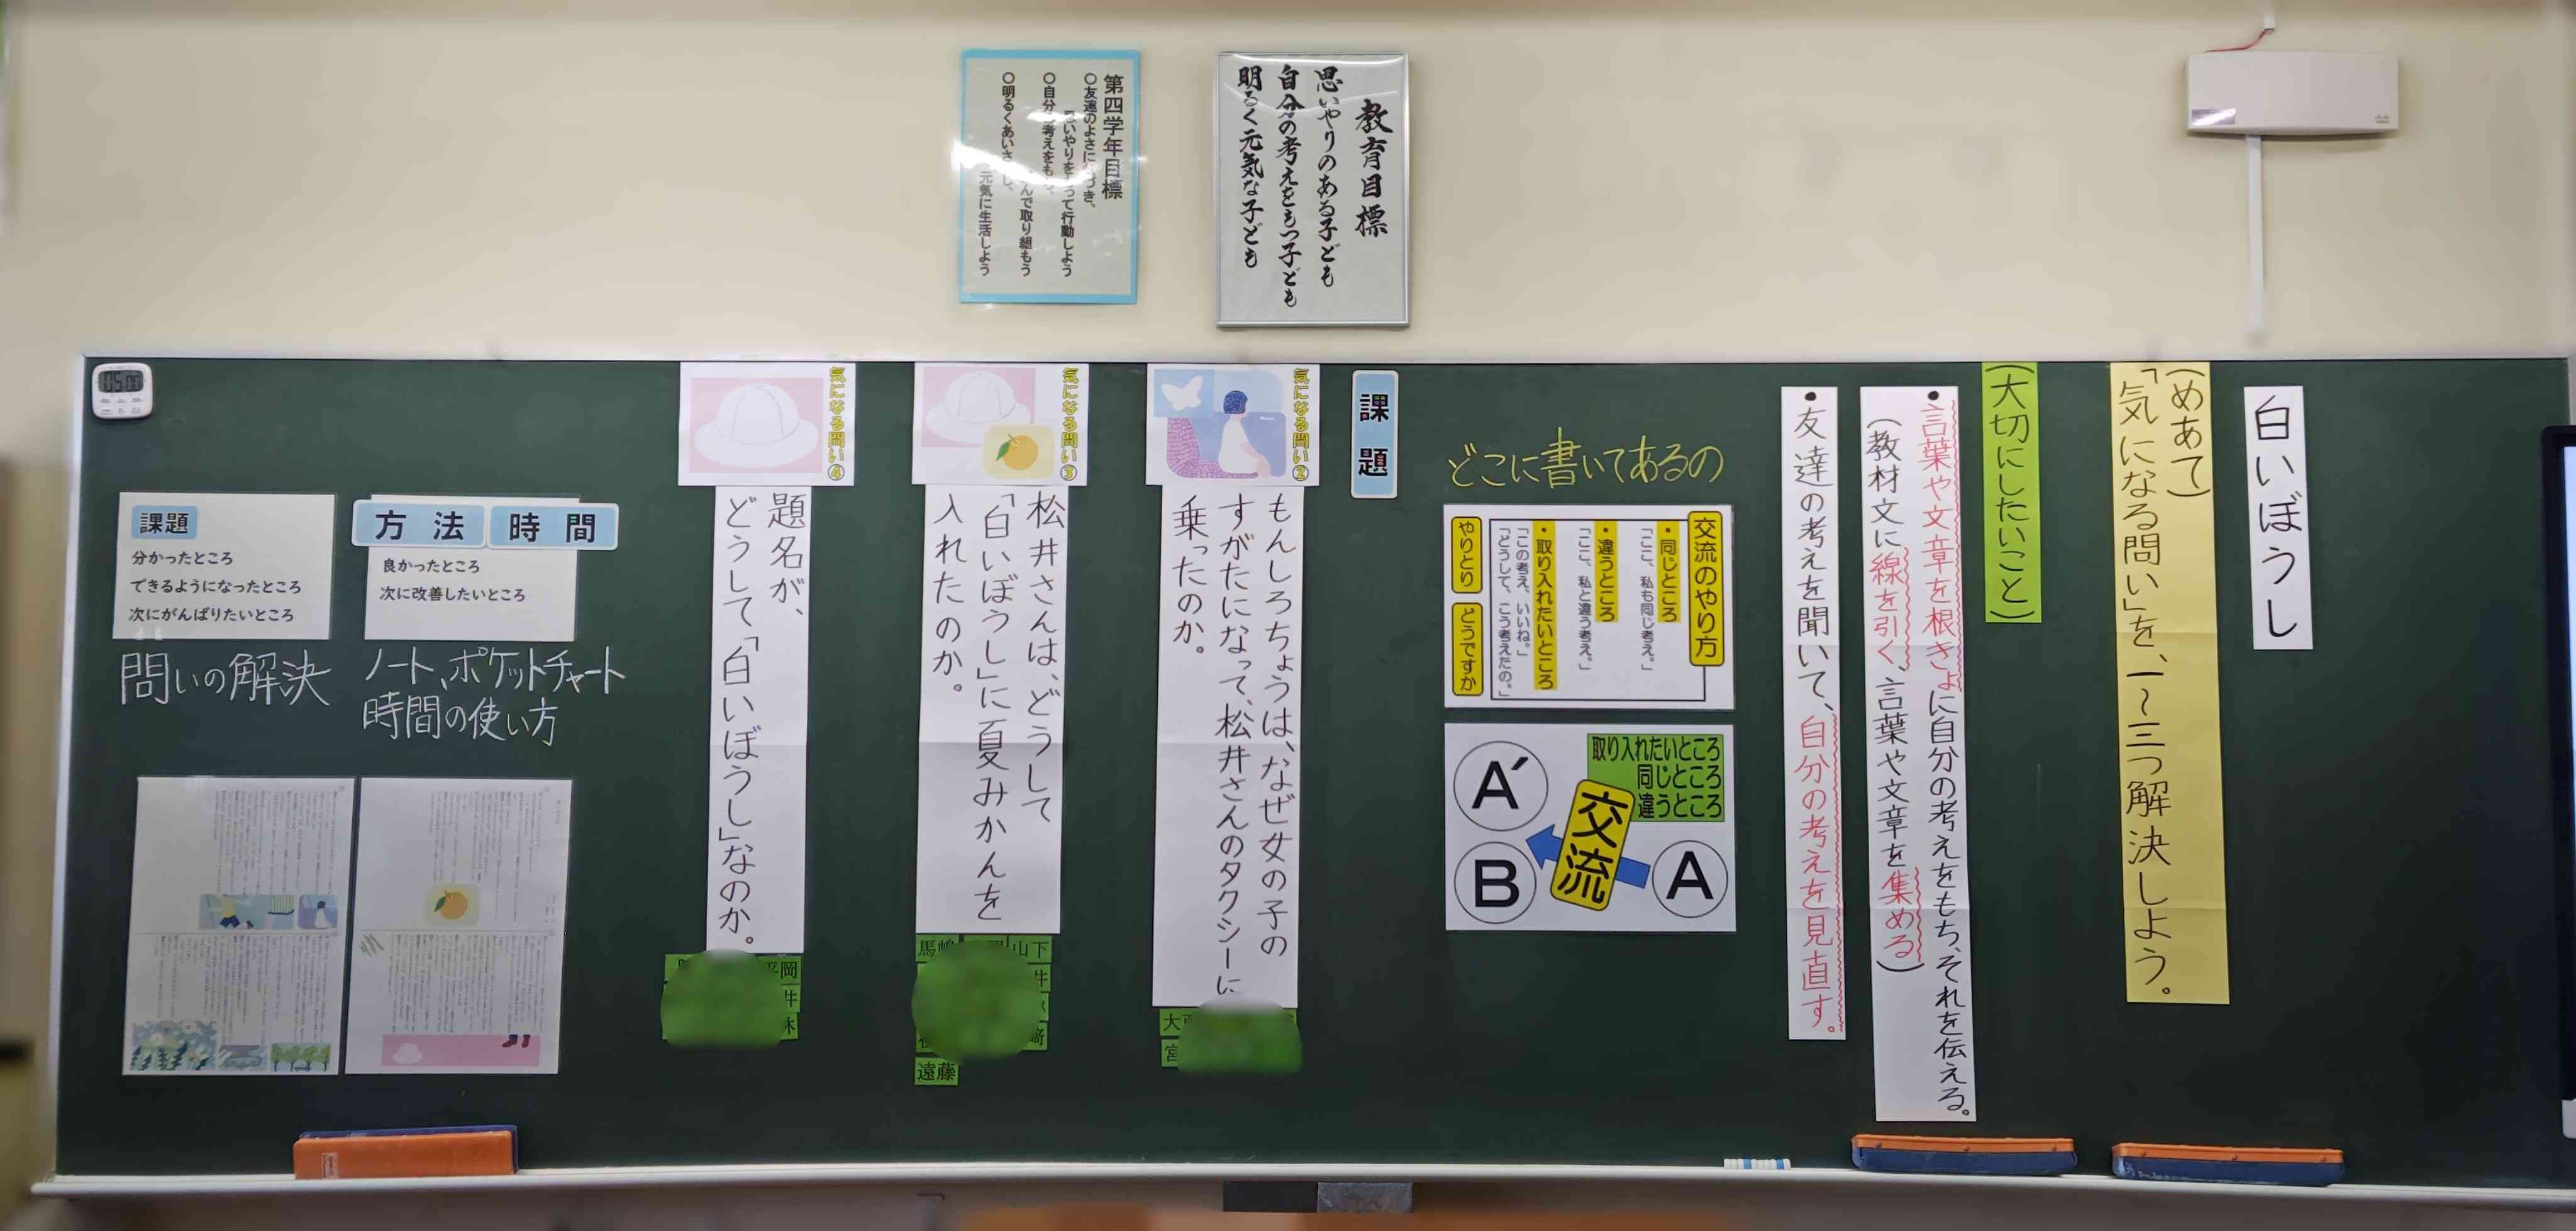 教育目標
思いやりのある子ども
自分の考えをもつ子ども
明るく元気な子ども
第四学年目標
○友達のよさに づき、
いやりを って行動しよう
○自分 考えをも 、
んで取り組もう
○明るくあいさ し、
元気に生活しよう
白いぼうし
(めあて)
「気になる問い」を、一〜三つ解決しよう。
(大切にしたいこと)
●言葉や文章を根きょに自分の考えをもち、それを伝える。
(教材文に線を引く、言葉や文章を集める)
●友達の考えを聞いて、自分の考えを見直す。
どこに書いてあるの
交流のやり方
・同じところ
「ここ、私も同じ考え。」
・違うところ
「ここ、私と違う考え。」
・取り入れたいところ
「この考え、いいね。」
「どうして、こう考えたの。」
やりとり
どうですか
取り入れたいところ
同じところ
違うところ
A
交流
A´
B
課題
気になる問い②
もんしろちょうは、なぜ女の子の
すがたになって、松井さんのタクシーに
乗ったのか。
大
宮
気になる問い③
松井さんは、どうして
「白いぼうし」に夏みかんを
入れたのか。
山下
井
﨑
馬嶋
遠藤
気になる問い④
題名が、
どうして「白いぼうし」なのか。
平岡
井
林
方法
時間
良かったところ
次に改善したいところ
ノート、ポケットチャート
時間の使い方
課題
分かったところ
できるようになったところ
次にがんばりたいところ
問いの解決
05:00